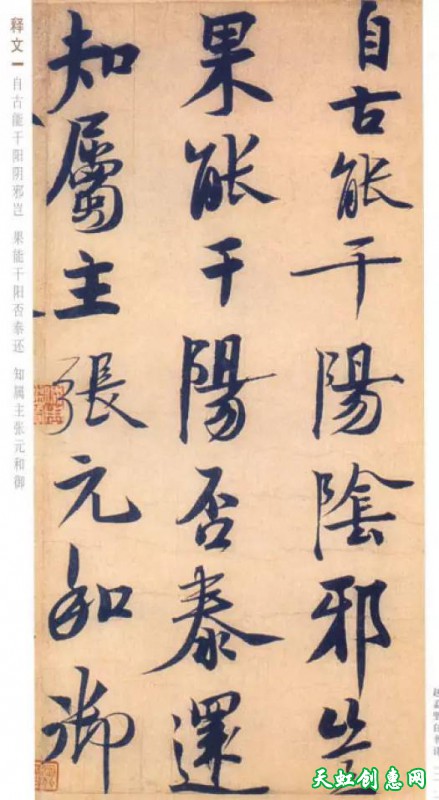 自古能干陽陰邪豈
果能干陽否泰還
知屬主張元和御
释文 自古能干阳阴邪岂 果能干阳否泰还 知属主张元和御
天虹创惠网